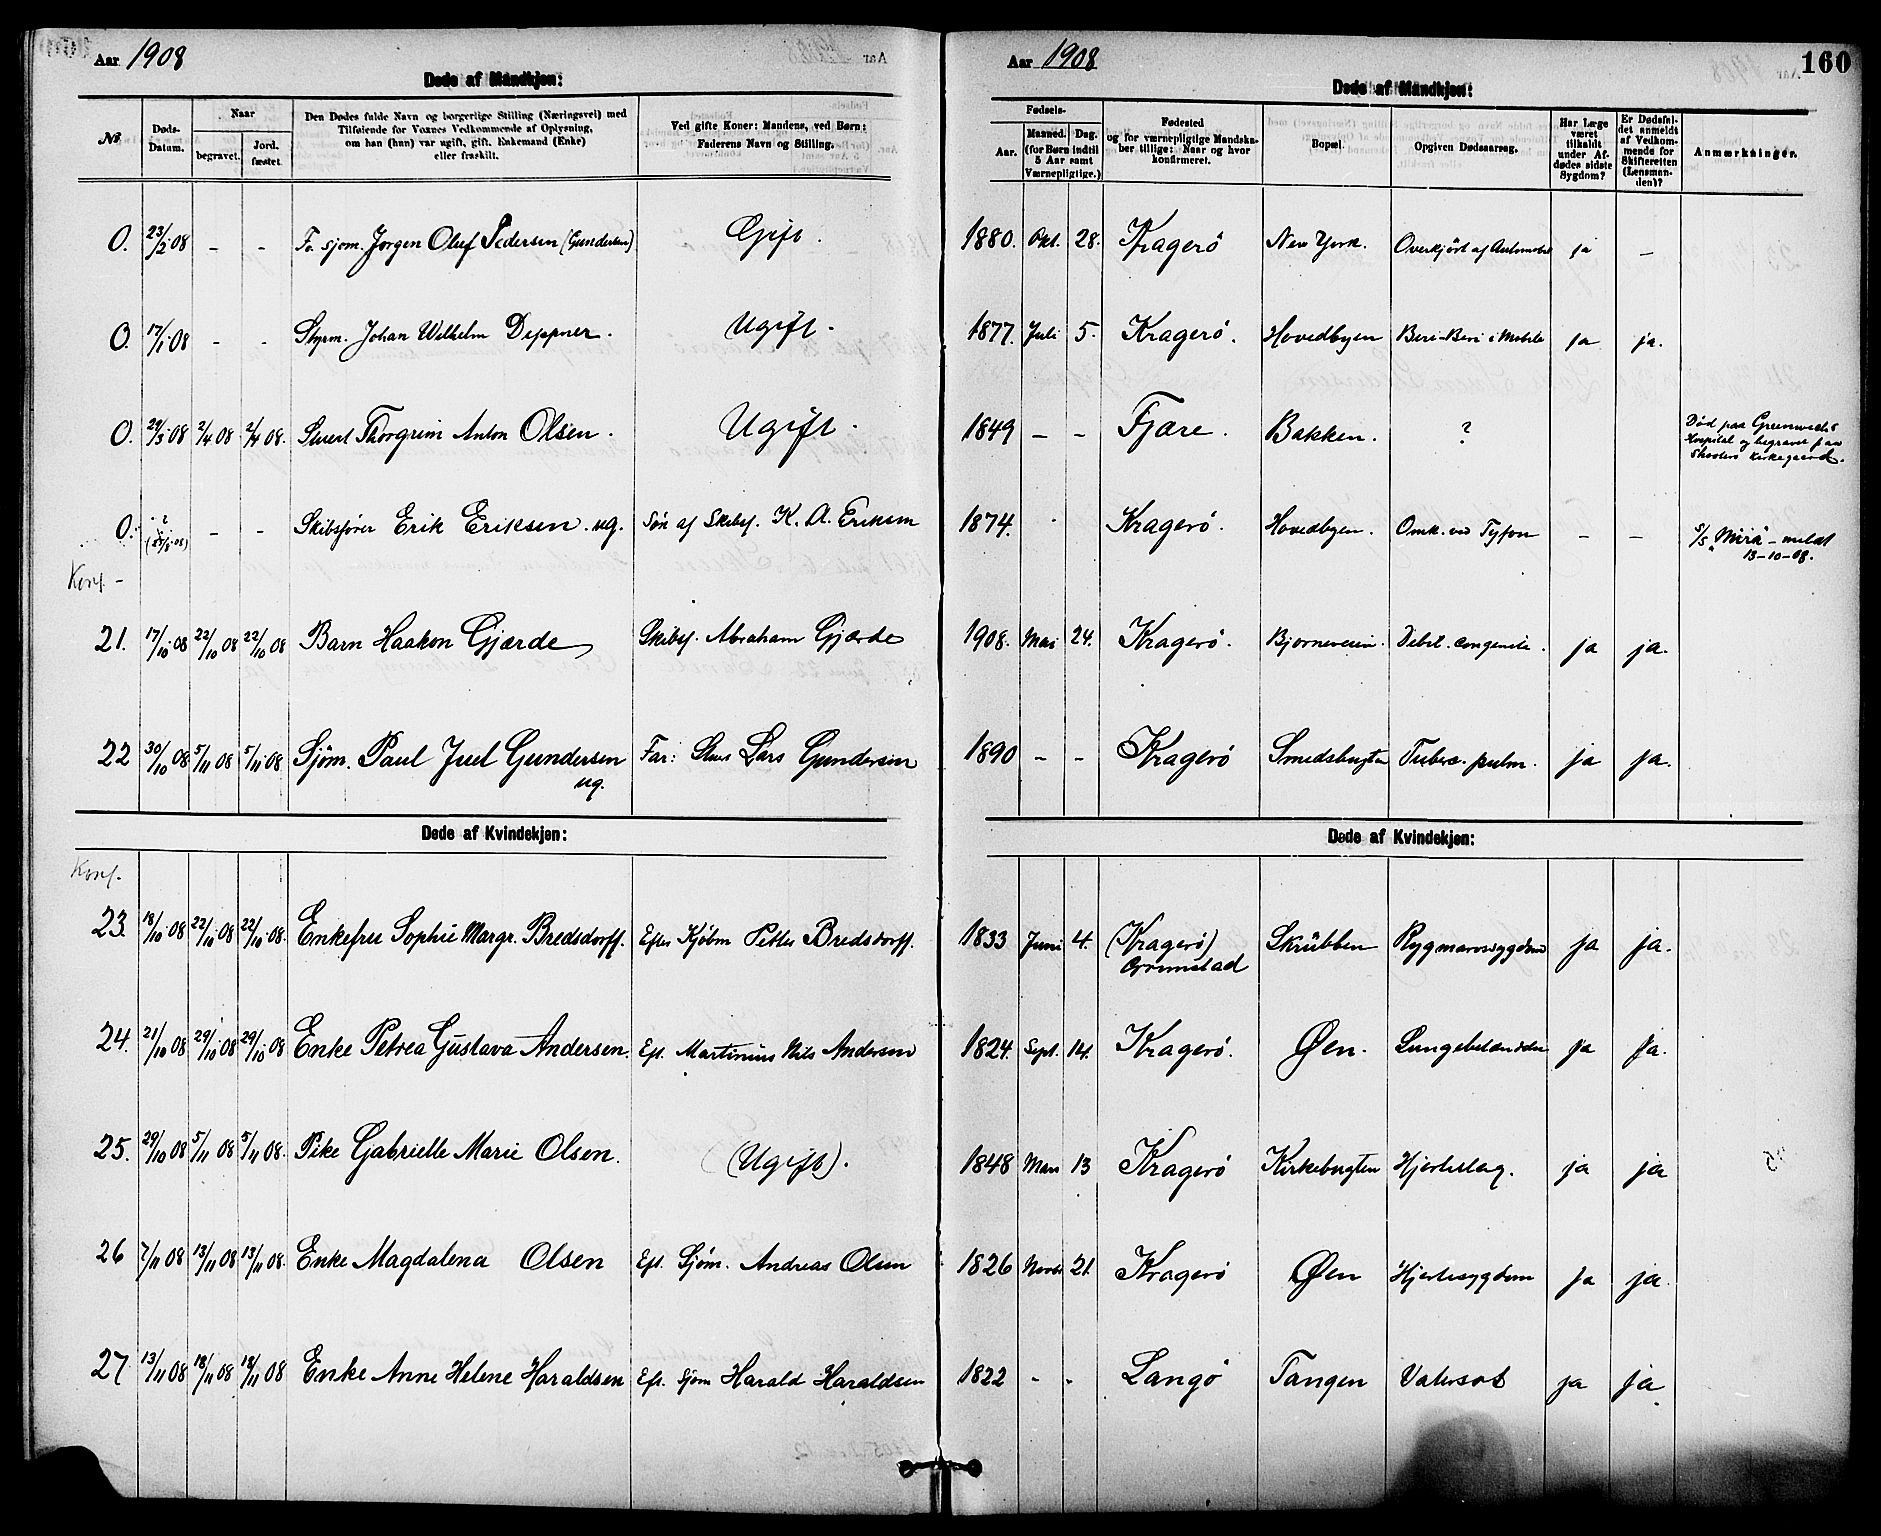 Aar 1908
Døde af Mandkjøn:
No.
Døds-Datum.
Naar
begravet.
Jord.fæstet.
Den Dødes fulde Navn og borgerlige Stilling (Næringsvei) med
Tilføiende for Voxnes Vedkommende af Oplysning,
om han (hun) var ugift, gift, Enkemand (Enke)
eller fraskilt.
Ved gifte Koner: Mandens, ved Børn:
Faderens Navn og Stilling.
0. 23/2 08 - - Fv. sjøm. Jørgen Oluf Pedersen (Gundersen) Gift.
0. 17/1 08 - - Styrm. Johan Wilhelm Deppner. Ugift.
0. 29/3 08 2/4 08 2/4 08. Thorgrim Anton Olsen. Ugift.
0. ? - - Skibsfører Erik Eriksen. ug. Søn af Skibsf. K. A. Eriksen
Konf. -
21. 17/10 08 22/10 08 22/10 08 Barn Haakon Gjærde Skibsf. Abraham Gjærde
22 30/10 08 5/11 08 5/11 08 Sjøm. Paul Juel Gundersen Far: Lars Gundersen
ug.
Døde af Kvindekjøn:
Konf.
23. 18/10 08 22/10 08 22/10 08. Enkefru Sophie Margr. Bredsdorff. Efter Kjøbm Petter Bredsdorff.
24. 21/10 08 29/10 08 29/10 08 Enke Petrea Gustava Andersen. Eft. Martinius Nils Andersen
25. 29/10 08 5/11 08 5/11 08. Pike Gabrielle Marie Olsen. (Ugift).
26 7/11 08 13/11 08 13/11 08. Enke Magdalena Olsen Eft. Sjøm. Andreas Olsen
27 13/11 08 18/11 08 18/11 08 Enke Anne Helene Haraldsen Eft. Sjøm Harald Haraldsen
Aar 1908
160
Døde af Mandkjøn:
Fødsels-
Aar.
Maaned. Dag.
(for Børn indtil
5 Aar samt
Værnepligtige.)
Fødested
og for værnepligtige Mandska-
ber tillige: Naar og hvor
konfirmeret.
Bopæl.
Opgiven Dødsaarsag.
Har Læge
været
tilkaldt
under Af-
dødes sidste
Sygdom?
Er Dødsfal-
det anmeldt
af Vedkom-
mende for
Skifteretten
(Lensman-
den)?
Anmærkninger.
1880. Okt. 28. Kragerö New York. Overkjört af Automobil ja -
1877. Juli 5. Kragerö. Hovedbyen Beri-Beri i Mobile ja ja.
1849 - - Fjære. Bakken. ?
Død paa Greenwichs
Hospital og begravet paa
Kirkegaard.
1874. Kragerö. Hovedbyen. Omk. ved Tyfon - -
S/S "Mira" - meldt
13-10-08.
1908. Mai 24. Kragerö. Bjørneveien. Debil. congenita. ja ja.
1890 - - Kragerö Smedsbugten Tuberc. pulm. ja ja.
Døde af Kvindekjøn:
1833 Juni 4. (Kragerö) Skrübben Rygmarvssygdom ja ja.
Grimstad
1824. Sept. 14. Kragerö. Øen. Lungebetændelse ja ja.
1848 13 Kragerö Kirkebugten Hjerteslag. ja ja
1826 Novbr 21. Kragerö Øen Hjertesygdom ja ja.
1822 - - Langö Tangen Vatersot ja ja.